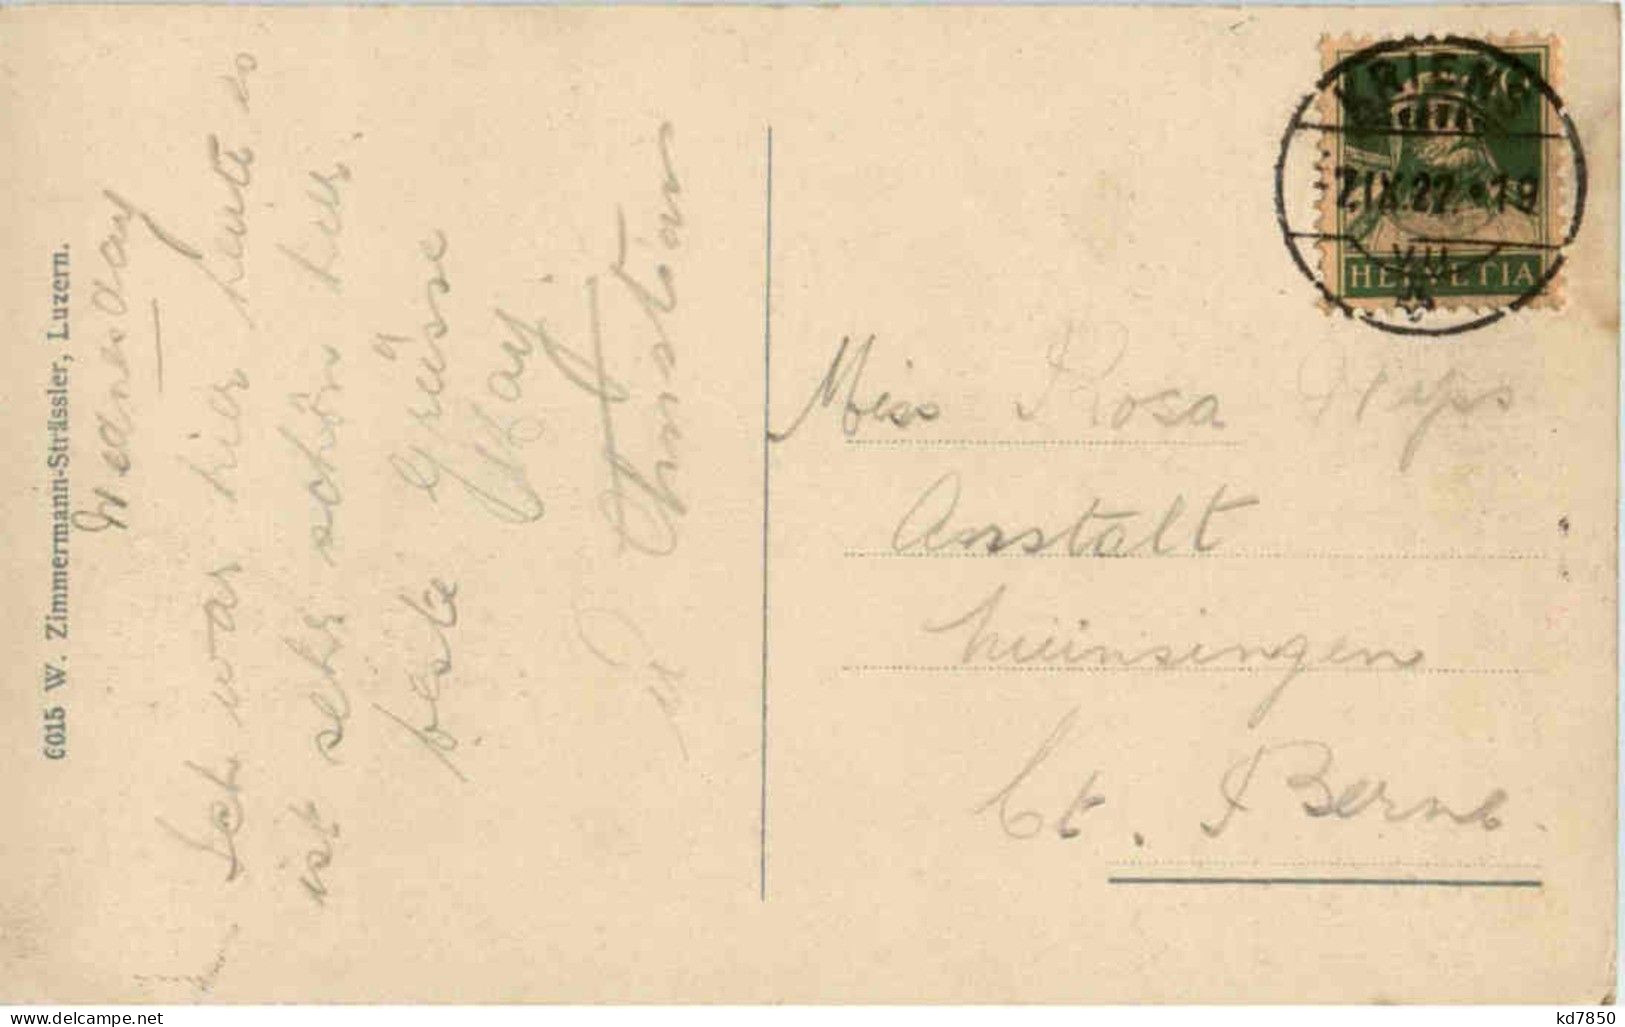 6015 W. Zimmermann-Strässler, Luzern.
Wednesday
Ich war hier heute es
ist sehr schön hier.
beste Grüsse
May
u Christian
KRIENS
7.IX.27.-19
VII
HELVETIA
Miss Rosa
Anstalt
Münsingen
Ct. Berne.
kd7850